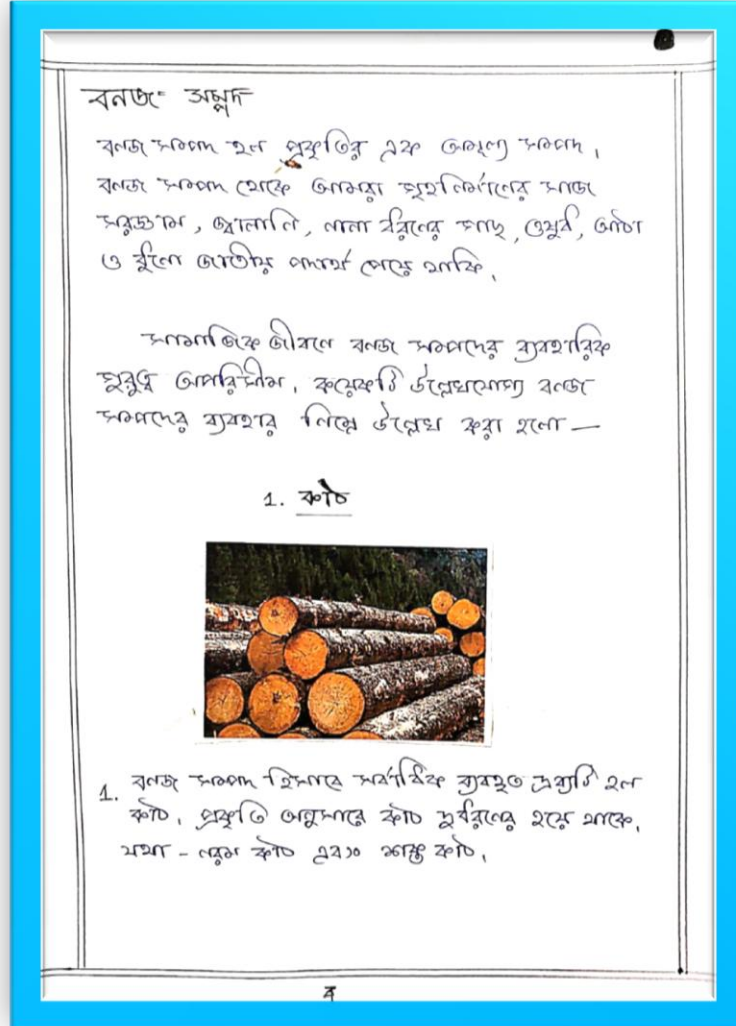 বনজ সম্পদ
বনজ সম্পদ হল প্রকৃতির এক অমূল্য সম্পদ।
বনজ সম্পদ থেকে আমরা গৃহনির্মাণের সাজ
সরঞ্জাম, জ্বালানি, নানা ধরনের গাছ, ওষুধ, আঠা
ও ধুনো জাতীয় পদার্থ পেয়ে থাকি।
সামাজিক জীবনে বনজ সম্পদের ব্যবহারিক
গুরুত্ব অপরিসীম। কয়েকটি উল্লেখযোগ্য বনজ
সম্পদের ব্যবহার নিম্নে উল্লেখ করা হলো —
1. কাঠ
1. বনজ সম্পদ হিসাবে সর্বাধিক ব্যবহৃত দ্রব্যটি হল
কাঠ। প্রকৃতি অনুসারে কাঠ দুধরনের হয়ে থাকে,
যথা - নরম কাঠ এবং শক্ত কাঠ।